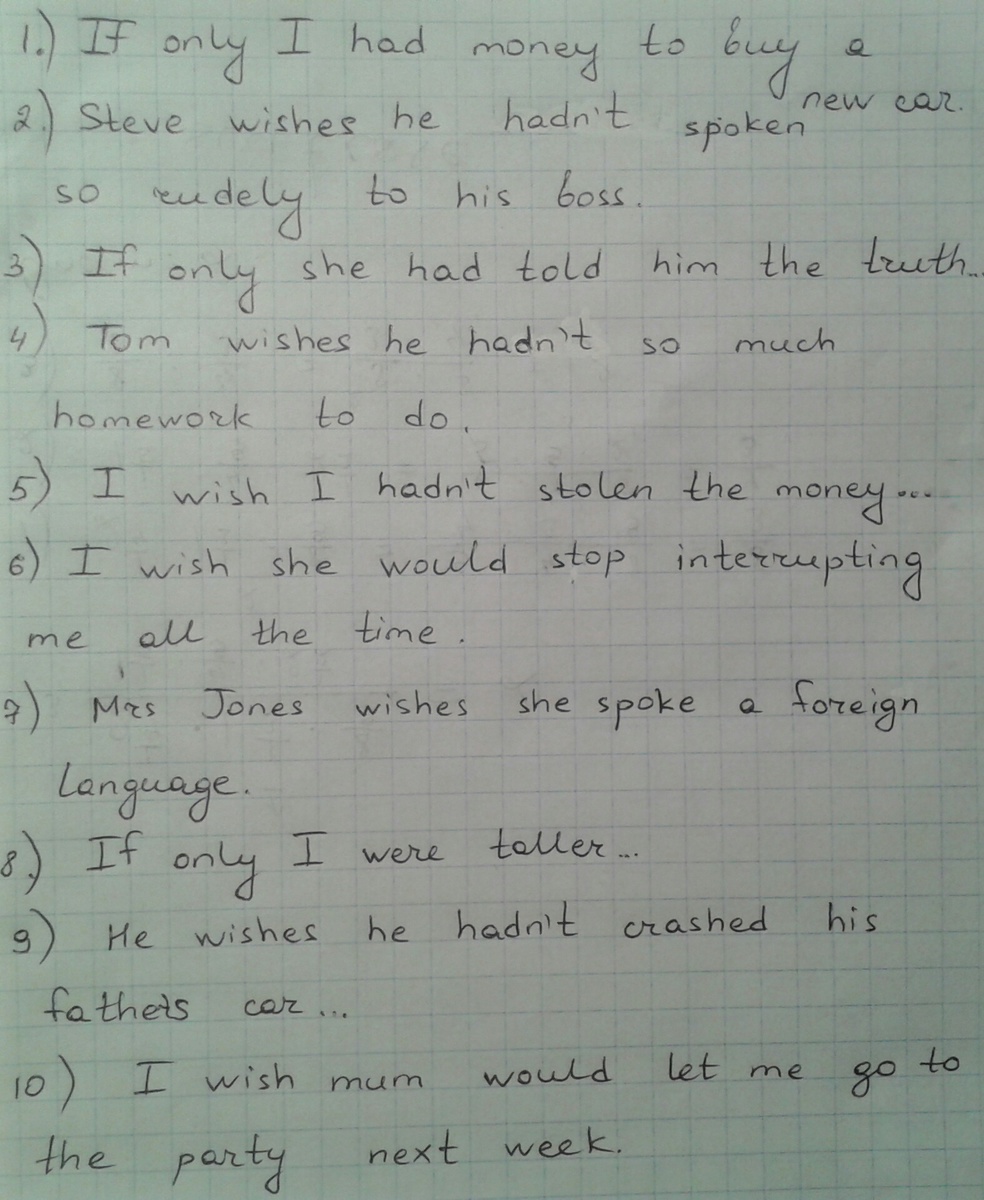 1.) If only I had money to buy a
new car.
2.) Steve wishes he hadn't spoken
so rudely to his boss.
3) If only she had told him the truth...
4) Tom wishes he hadn't so much
homework to do.
5) I wish I hadn't stolen the money...
6) I wish she would stop interrupting
me all the time.
7) Mrs Jones wishes she spoke a foreign
language.
8.) If only I were taller...
9) He wishes he hadn't crashed his
fathers car...
10) I wish mum would let me go to
the party next week.